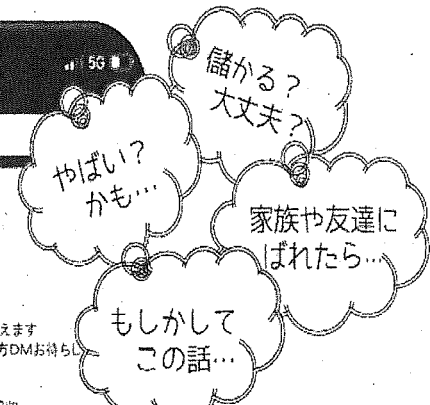 5G
儲かる?
大丈夫?
やばい?
かも…
家族や友達に
ばれたら…
もしかして
この話…
えます
方DMお待ちし